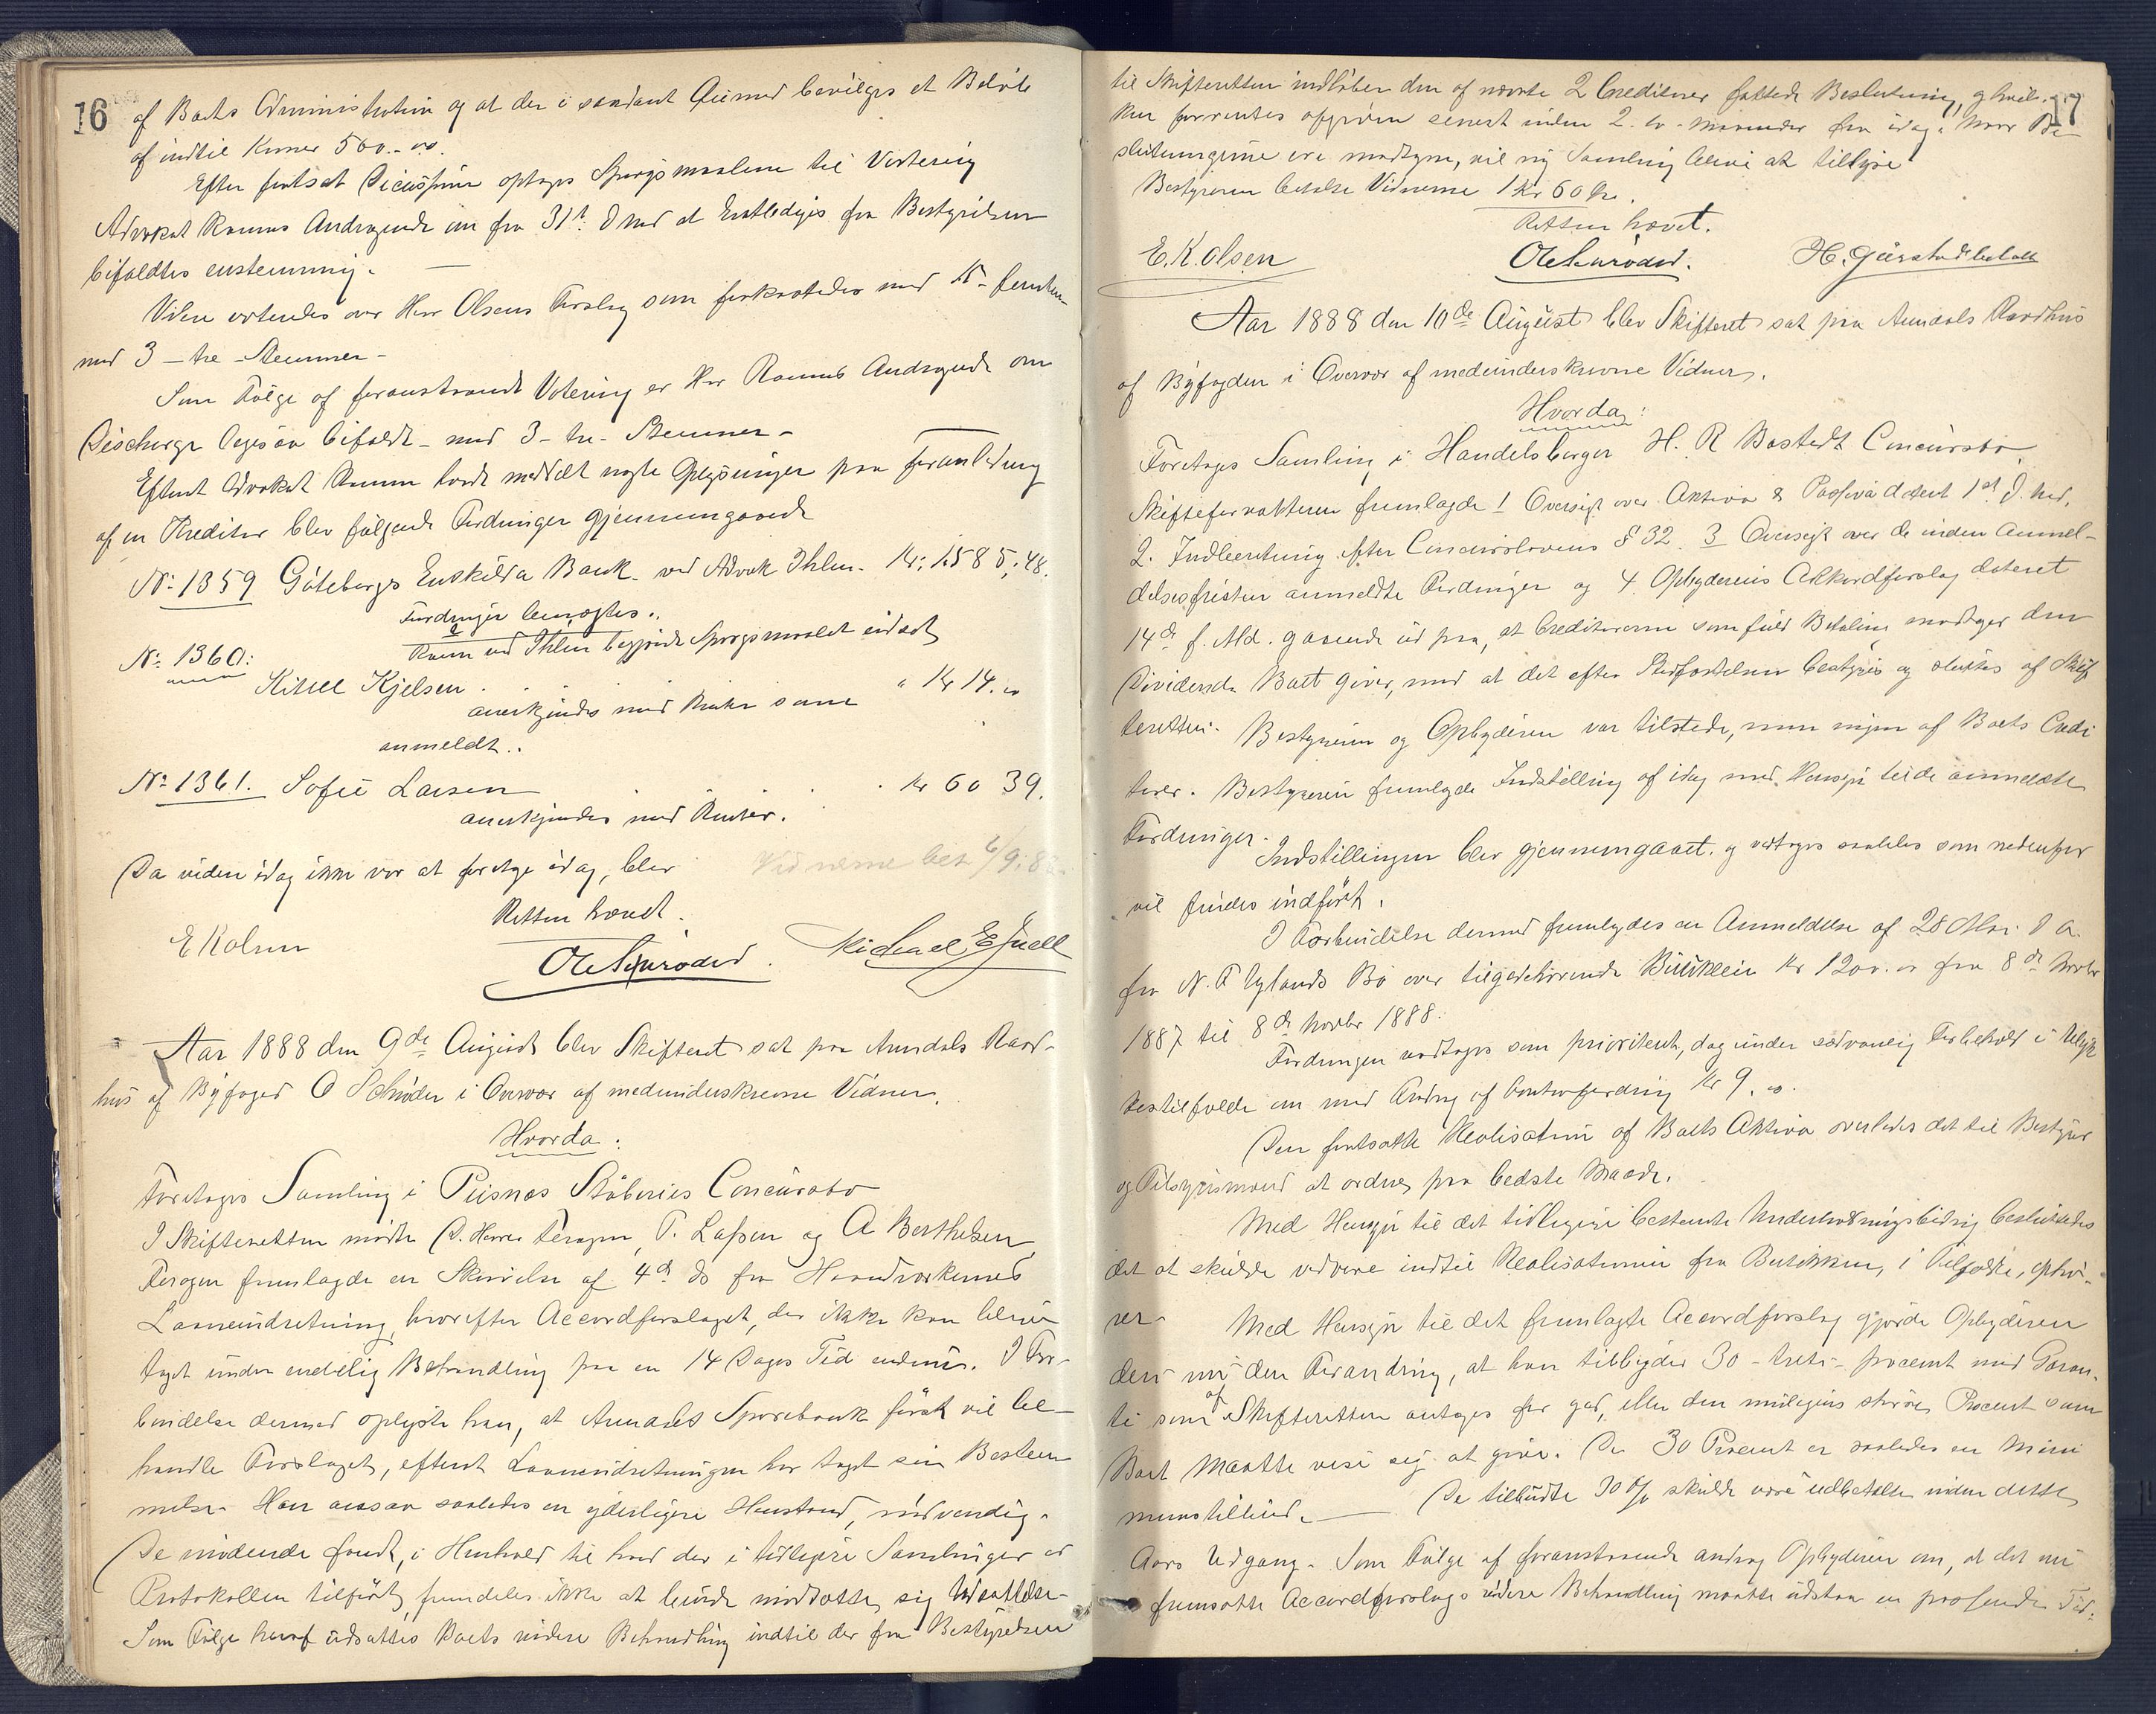 16
af Boets Administration og at der i saadant Øiemed bevilges et Beløb
af indtil Kroner 500 - oo.
Efter fortsat Discussion optoges Spørgsmaalene til Votering
Advokat Ramms Andragende om fra 31t: d md at entlediges fra Bestyrelsen
bifaldtes enstemmig. —
Videre voteredes over Herr Olsens Forslag som forkastedes med 15 - femten
mod 3 - tre - Stemmer -
Som Følge af foranstaaende Votering er Herr Ramms Andragende om
Discharge ligesaa bifaldt - mod 3 - tre - Stemmer -
Efterat Advokat Ramm havde meddelt nogle Oplysninger paa Foranledning
af en Kreditor blev følgende Fordringer gjennemgaaede
No: 1359 Göteborgs Enskilda Bank ved Advok Ihlen - Kr: 1585,48.
Fordringen benægtes.
Ramm ved Ihlen begjærede Spørgsmaalet udsat
No: 1360:
Kittel Kjelsen . " Kr 14. oo
anerkjendes med Renter som
anmeldt..
No: 1361. Sofie Larsen . . . Kr 60 39.
anerkjendes med Renter.
Da videre idag ikke var at foretage idag, blev
Vidnerne bet 6/9.88
Retten hævet.
E K Olsen Ole Schrøder. Michael E Snell
Aar 1888 den 9de August blev Skifteret sat paa Arendals Raad-
hus af Byfoged O Schrøder i Overvær af medunderskrevne Vidner.
Hvorda:
Foretoges Samling i Pusnæs Støberies Concursbo
I Skifteretten mødte D. Herrer Terogen, P. Lassen og A Berthelsen
Terogen fremlagde en Skrivelse af 4de ds fra Haandværkernes
Laaneindretning, hvorefter Accordforslaget, der ikke kan blive
taget under endelig Behandling paa en 14 Dages Tid endnu. I For-
bindelse dermed oplyste han, at Arendals Sparebank først vil be-
handle Forslaget, efterat Laaneindretningen har taget sin Bestem
melse. Han ansaa saaledes en yderligere Henstand nødvendig.
De mødende fandt, i Henhold til hvad der i tidligere Samlinger er
Protokollen tilført, fremdeles ikke at burde modsætte sig Udsættelse -
Som Følge heraf udsattes Boets videre Behandling indtil der fra Bestyrelsen
17
til Skifteretten indløber den af nævnte 2 Creditorer fattede Beslutning, g hvil-
ken forventes afgiven senest inden 2 - to - Maaneder fra idag. Naar Be
slutningerne ere modtagne, vil ny Samling blive at tillyse
Bestyreren betalte Vidnerne 1 Kr 60 Øre.
Retten hævet.
E. K. Olsen OleSchrøder.
Aar 1888 den 10de August blev Skifteret sat paa Arendals Raadhus
af Byfogden i Overvær af medunderskrevne Vidner.
Hvorda:
Foretoges Samling i Handelsborger H. R Bostedt Concursbo.
Skifteforvalteren fremlagde 1 Oversigt over Aktiva & Passiva dateret 1st d. Md,
2. Indberetning efter Concurslovens § 32. 3 Oversigt over de inden Anmel-
delsesfristen anmeldte Fordringer og 4. Opbyderens Akkordforslag dateret
14de f. Md. gaaende ud paa, at Creditorerne som fuld Betaling modtager den
Dividende Boet giver, mod at det efter Stedfæstelsen bestyres og sluttes af Skif
teretten. Bestyreren og Opbyderen var tilstede, men ingen af Boets Credi
torer. Bestyreren fremlagde Indstilling af idag med Hensyn til de anmeldte
Fordringer.
Indstillingen blev gjennemgaaet, og vedtoges saaledes som nedenfor
vil findes indført.
I Forbindelse dermed fremlagdes en Anmeldelse af 28 Mai d A.
fra N. F Uglands Bo over tilgodehavende Butikleie Kr 1200. oo fra 8de Novbr
1887 til 8de Novbr 1888.
Fordringen vedtoges som prioriteret, dog under sædvanlig Forbehold i Utilstræk
kestilfælde om med Andrag af Contrafordring Kr 9. oo.
Den fortsatte Realisation af Boets Aktiva overlodes det til Bestyrer
og Tilsynsmand at ordne paa bedste Maade.
Med Hensyn til det tidligere bestemte Underholdningsbidrag besluttedes
det at skulde vedvare indtil Realisationen fra Butikken, i Tilfælde, ophø-
rer.
Med Hensyn til det fremlagte Accordforslag gjorde Opbyderen
deri nu den Forandring, at han tilbyder 30 - treti - procent med Garan-
ti som af Skifteretten antages for god, eller den muligens større Procent som
Boet maatte vise sig at give. De 30 Procent er saaledes en Mini
mumstilbud. — De tilbudte 30 % skulde være udbetalte inden dette
Aars Udgang. Som Følge af foranstaaende androg Opbyderen om, at det nu
fremsatte Accordforslags videre Behandling maatte udstaa en passende Tid.